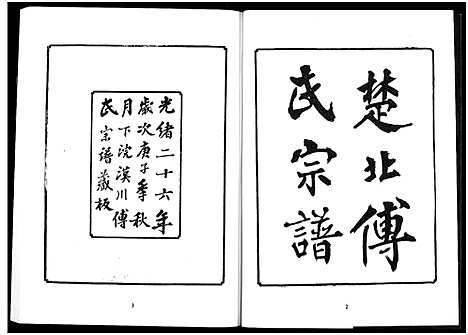 楚北傅
氏宗譜
2
光緒二十六年
歲次庚子季秋
月下浣漢川傅
氏宗譜藏板
3